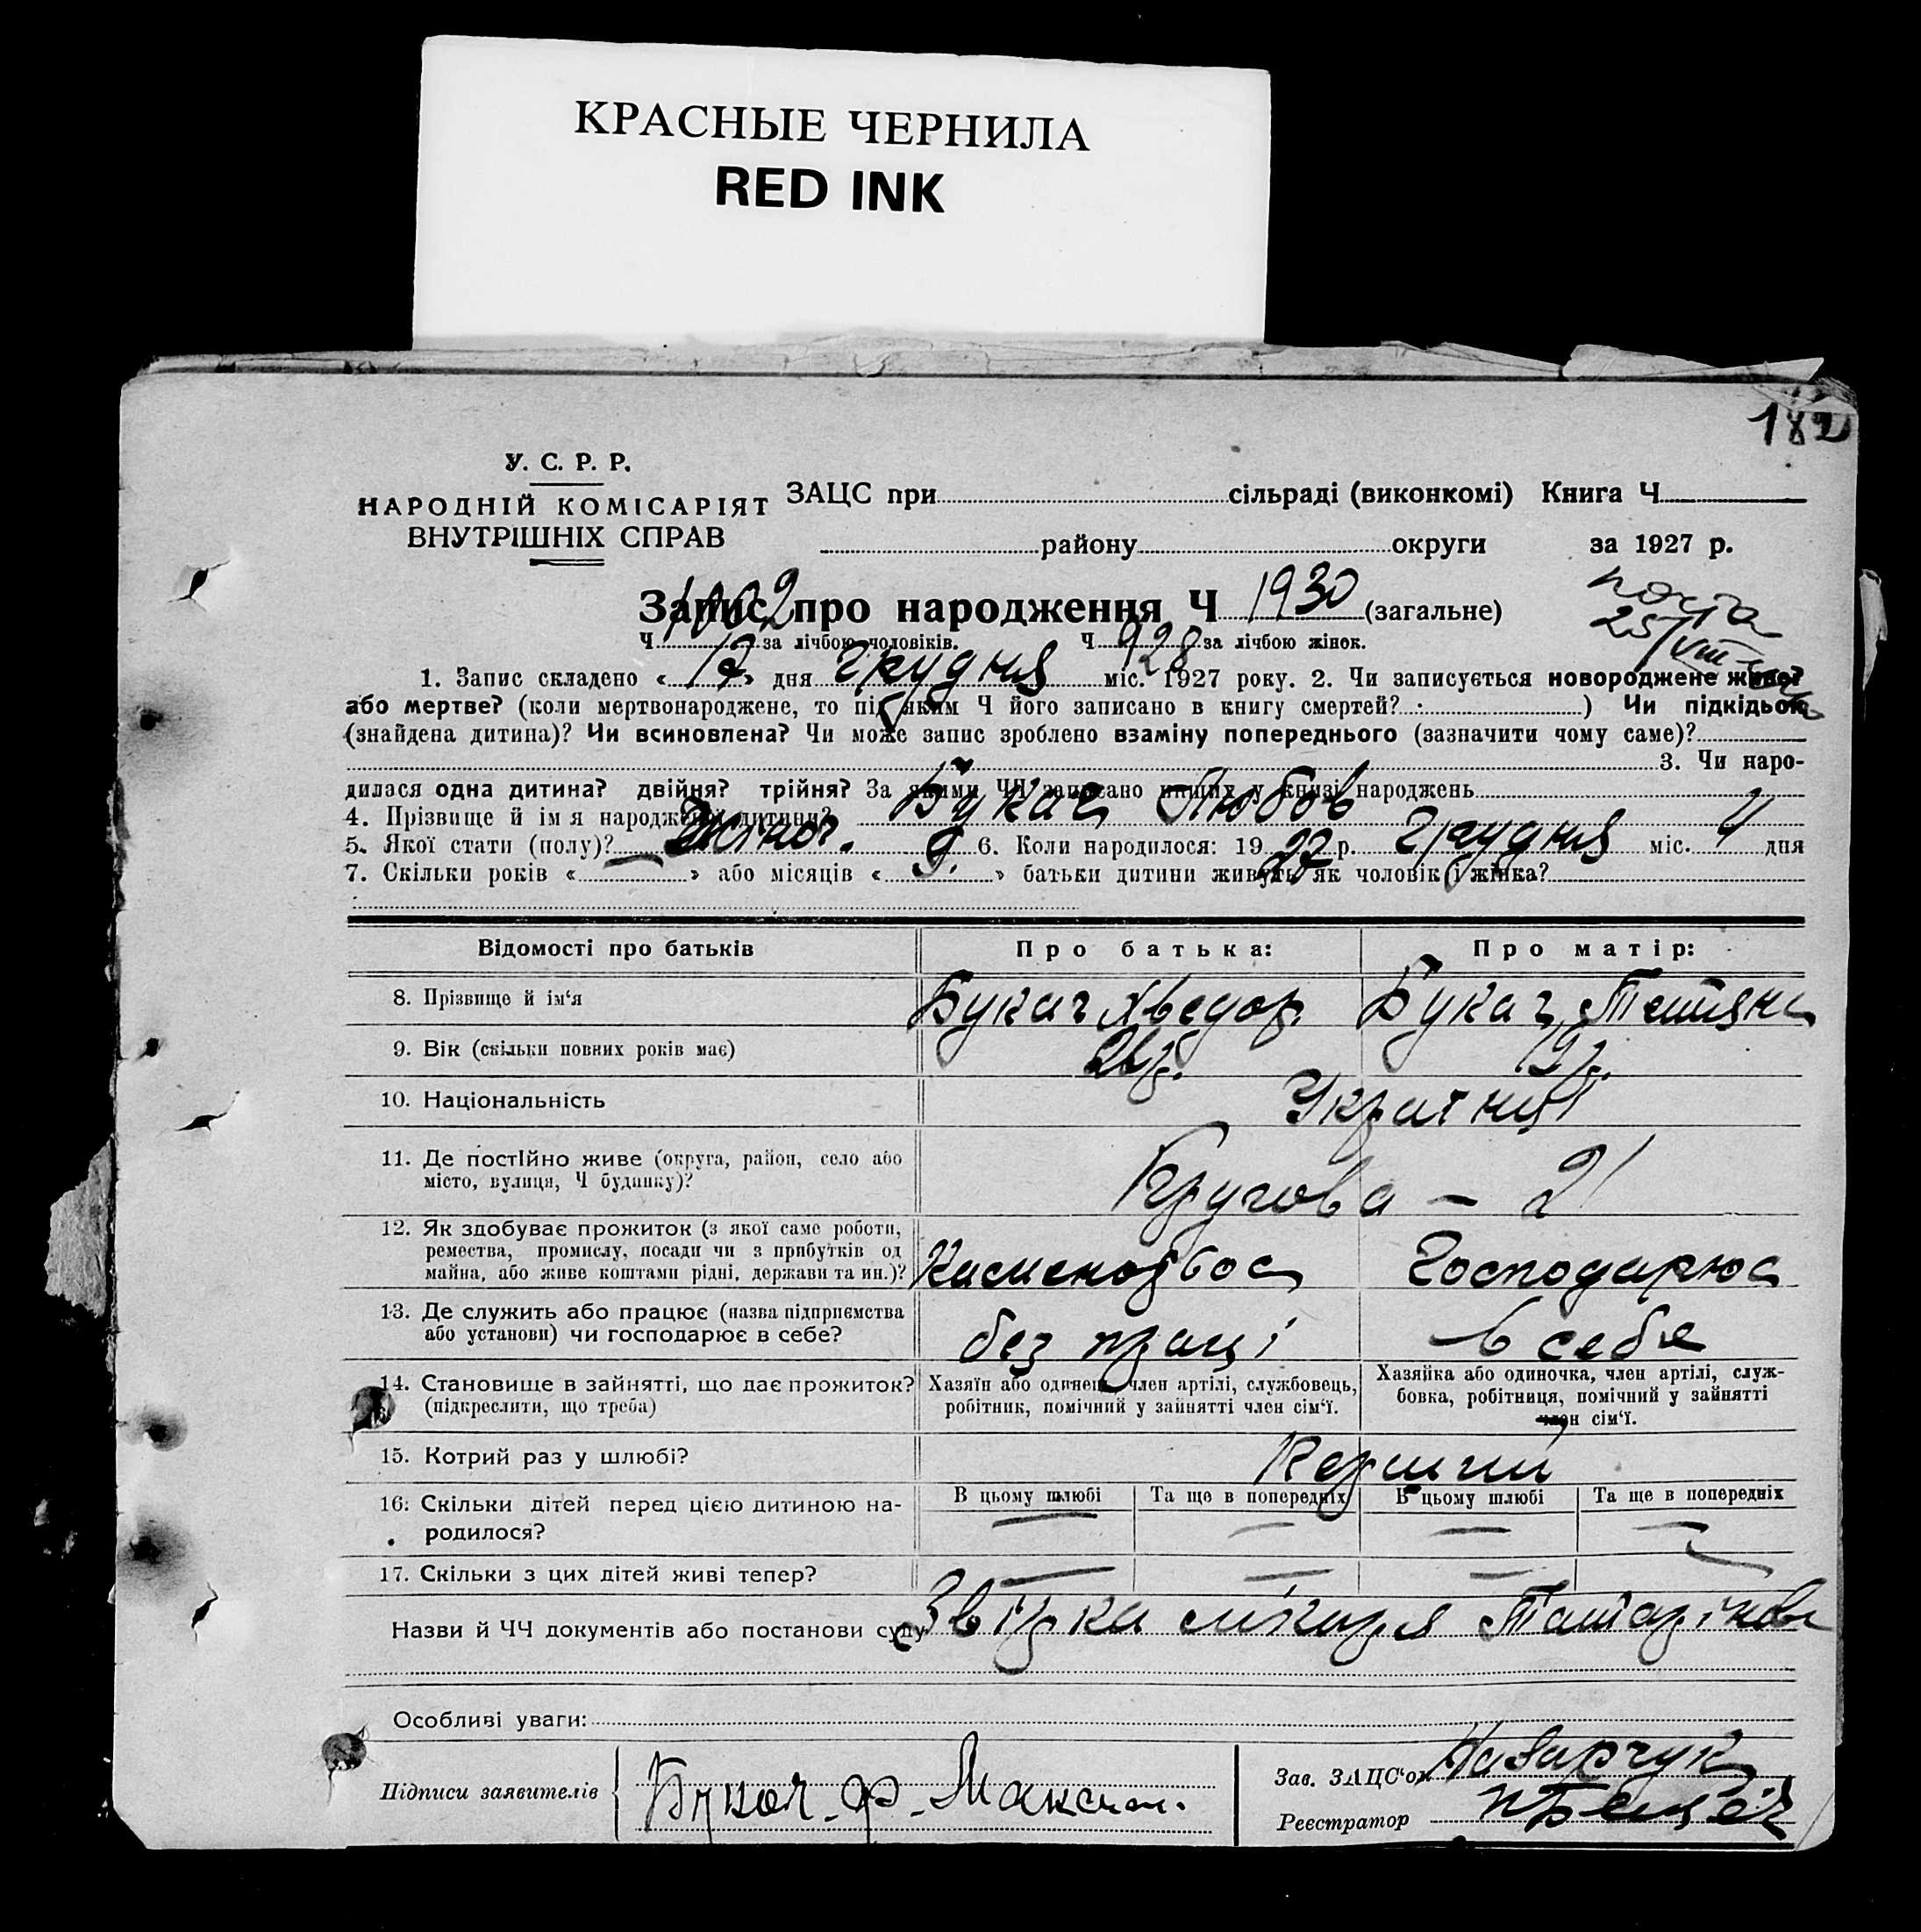 КРАСНЫЕ ЧЕРНИЛА
RED INK
182
У. С. Р. Р.
НАРОДНІЙ КОМІСАРІЯТ
ВНУТРІШНІХ СПРАВ
ЗАЦС при сільраді (виконкомі) Книга Ч
району округи за 1927 р.
Запис про народження Ч 1930 (загальне)
Ч 1002 за лічбою чоловіків. Ч 928 за лічбою жінок.
25/VIII
1. Запис складено « 17 » дня грудня міс. 1927 року. 2. Чи записується новороджене живе?
або мертве? (коли мертвонароджене, то під яким Ч його записано в книгу смертей? ) Чи підкідьок
(знайдена дитина)? Чи всиновлена? Чи може запис зроблено взаміну попереднього (зазначити чому саме)?
3. Чи наро-
дилася одна дитина? двійня? трійня? За якими ЧЧ записано инших у книзі народжень
4. Прізвище й ім я народженої дитини? Букач Любов
5. Якої стати (полу)? жіноч. 6. Коли народилося: 19 27 р. грудня міс. 4 дня
7. Скільки років « — » або місяців « 9. » батьки дитини живуть як чоловік і жінка?
Відомості про батьків Про батька: Про матір:
8. Прізвище й ім‘я Букач Хведор Букач Тетяна
9. Вік (скільки повних років має) 19р.
10. Національність Українці
11. Де постійно живе (округа, район, село або
місто, вулиця, Ч будинку)? Кругова – 21
12. Як здобуває прожиток (з якої саме роботи,
ремества, промислу, посади чи з прибутків од
майна, або живе коштами рідні, держави та ин.)? Господарює
13. Де служить або працює (назва підприємства
або установи) чи господарює в себе? без праці в себе
14. Становище в зайнятті, що дає прожиток?
(підкреслити, що треба)
Хазяїн або одинець, член артілі, службовець,
робітник, помічний у зайнятті член сім‘ї.
Хазяйка або одиночка, член артілі, служ-
бовка, робітниця, помічний у зайнятті
член сім‘ї.
15. Котрий раз у шлюбі? Перший
16. Скільки дітей перед цією дитиною на-
родилося?
В цьому шлюбі Та ще в попередніх В цьому шлюбі Та ще в попередніх
— — — —
17. Скільки з цих дітей живі тепер? — — — —
Назви й ЧЧ документів або постанови суду Звістка лікаря
Особливі уваги:
Підписи заявителів Букач. Ф. Максим.
Зав. ЗАЦС‘ом Назарчук
Реєстратор